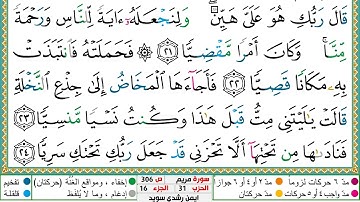 قَالَ رَبُّكِ هُوَ عَلَىَّ هَيِّنٌ ۖ وَلِنَجْعَلَهُۥٓ ءَايَةً لِّلنَّاسِ وَرَحْمَةً
مِّنَّا ۚ وَكَانَ أَمْرًا مَّقْضِيًّا ٢١ فَحَمَلَتْهُ فَٱنتَبَذَتْ
بِهِۦ مَكَانًا قَصِيًّا ٢٢ فَأَجَآءَهَا ٱلْمَخَاضُ إِلَىٰ جِذْعِ ٱلنَّخْلَةِ
قَالَتْ يَـٰلَيْتَنِى مِتُّ قَبْلَ هَـٰذَا وَكُنتُ نَسْيًا مَّنسِيًّا ٢٣
فَنَادَىٰهَا مِن تَحْتِهَآ أَلَّا تَحْزَنِى قَدْ جَعَلَ رَبُّكِ تَحْتَكِ سَرِيًّا ٢٤
مدّ ٦ حركات لزوماً مدّ ٢ أو ٤ أو ٦ جوازاً سورة مريم ص 306 إخفاء، ومواقع الغُنَّة (حركتان) تفخيم
مدّ واجب ٤ أو ٥ حركات مدّ حركتان الحزب 31 الجزء 16 إدغام، وما لا يُلفَظ قلقلة
ايمن رشدي سويد